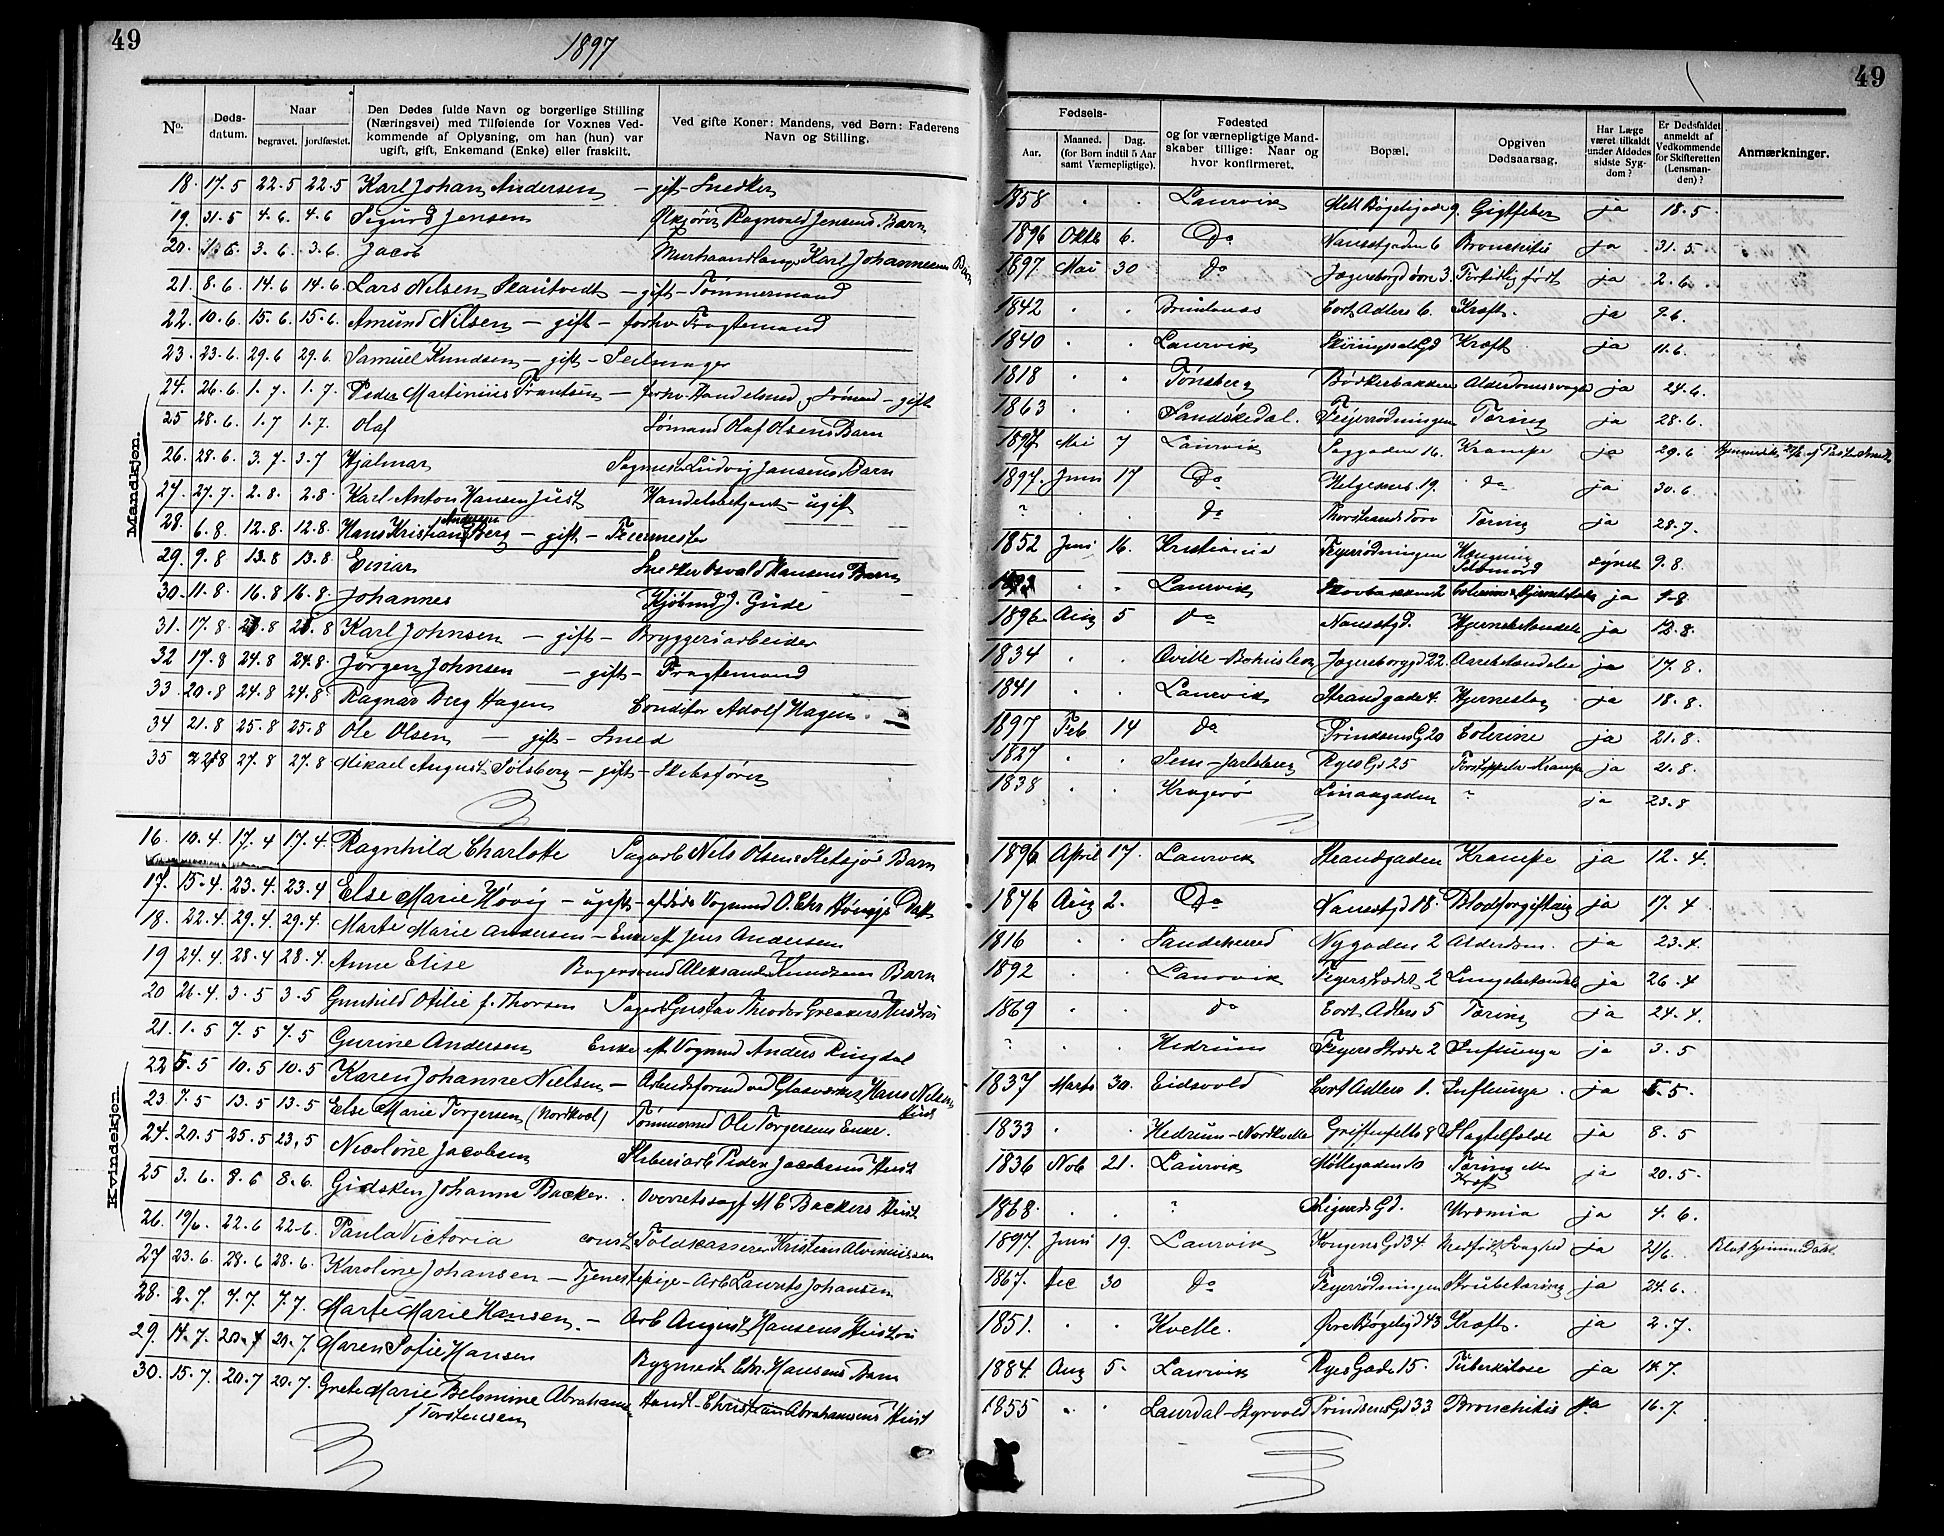 49
1897
49
No. Døds-datum. Naar begravet. jordfæstet. Den Dødes fulde Navn og borgerlige Stilling (Næringsvei) med Tilføiende for Voxnes Vedkommende af Oplysning, om han (hun) var ugift, gift, Enkemand (Enke) eller fraskilt. Ved gifte Koner: Mandens, ved Børn: Faderens Navn og Stilling. Fødsels- Aar. Maaned. Dag. (for Børn indtil 5 Aar samt Værnepligtige). Fødested og for værnepligtige Mandskaber tillige: Naar og hvor konfirmeret. Bopæl. Opgiven Dødsaarsag. Har Læge været tilkaldt under Afdødes sidste Sygdom? Er Dødsfaldet anmeldt af Vedkommende for Skifteretten (Lensmanden)? Anmærkninger.
Mandkjøn.
18. 17.5 22.5 22.5 Karl Johan Andersen – gift – Snedker 1858 . . Laurvik Mell Bøgeligade 9. Gigtfeber ja 18.5
19. 31.5 4.6. 4.6 Sigurd Jensen Ølkjører Ragnvald Jensens Barn 1896 Oktb 6. Do Nansetgaden 6 Bronchitis ja 31.5.
20. 1.6. 3.6. 3.6. Jacob Murhaandlanger Karl Johannesens Barn 1897. Mai 30 do Jægersborgd øvre 3. Fortidlig født ja 2.6.
21. 8.6. 14.6 14.6. Lars Nilsen Skautvedt – gift – Tømmermand 1842 . . Brunlanæs Cort Adlers 6. Kræft. ja 9.6.
22. 10.6. 15.6. 15.6. Amund Nilsen – gift – forhv Fragtemand 1840 . . Laurvik Skiringsal Gd Kræft ja 11.6.
23. 23.6. 29.6 29.6. Samuel Knudsen – gift – Seilmager 1818 . . Tønsberg Bødkerbakken Alderdomssvaghed ja 24.6.
24. 26.6 1.7. 1.7. Peder Martinius Frantsen – forhv. Handelsmd, Sømand – gift 1863 . . Sandøkedal. Feyerrødningen Tæring ja 28.6.
25 28.6. 1.7 1.7. Olaf Sømand Olaf Olsens Barn 1897 Mai 7 Laurvik Saggaden 16. Krampe ja 29.6
26. 28.6. 3.7. 3.7 Hjalmar Sagmester Ludvig Jansens Barn 1897. Juni 17 Do Helgesens 19. do ja 30.6.
27. 27.7. 2.8. 2.8. Karl Anton Hansen Just Handelsbetjent – ugift ? . . do Thorstrands Torv Tæring ja 28.7.
28. 6.8. 12.8. 12.8. Hans Kristian Andersen Berg – gift – Feiermester 1852 Juni 16. Kristiania Feyerrødningen Hængning Selvmord synet 9.8.
29. 9.8 13.8 13.8. Einar Snedker Osvald Hansens Barn . . Laurvik Skovbakken 2 ja 9.8
30. 11.8. 16.8 16.8. Johannes Kjøbmd J. Gude 1896. Aug 5 do Nansetgd. Hjernebetændelse ja 12.8.
31. 17.8 .8 .8 Karl Johnsen – gift – Bryggeriarbeider 1834 . . Jægersborggd 22. ja 17.8.
32 17.8 24.8 24.8. Jørgen Johnsen – gift – Fragtemand 1841 . . Laurvik Strandgade 4. Hjerneslag ja 18.8.
33. 20.8 24.8 24.8. Ragnar Berg Hagen Conditor Adolf Hagen 1897 Feb 14 do Prindsens G 20 Colerine ja 21.8.
34 21.8 25.8 25.8 Ole Olsen – gift – Smed 1827 . . Sem–Jarlsberg Ryes Gd 25 ja 21.8.
35 22.8 27.8 27.8 Mikael August Solsberg – gift – Skibsfører 1838 . . Kragerø Linaagaden ? ja 23.8
Kvindekjøn.
16. 10.4. 17.4 17.4. Ragnhild Charlotte Sagarb Nils Olsens Sletsjø Barn 1896 April 17. Laurvik Strandgaden Krampe ja 12.4.
17. 15.4. 23.4. 23.4 Else Marie Høvig – ugift – afdøde Vognmd O. Chr Høvigs Datt 1876 Aug 2. Do Nansetgd 18. Blodforgiftning ja 17.4
18. 22.4. 29.4. 29.4. Marte Marie Andersen – Enke ef. Jens Andersen 1816 . . Sandeherred Nygaden 2 Alderdom. ja 23.4.
19 24.4. 28.4 28.4. Anne Elise Bagersvend Aleksander Knudsens Barn 1892 . . Laurvik Feyers Strædet 2 Lungebetændelse ja 26.4
20 26.4. 3.5 3.5 Gunhild Otilie f. Thorsen Sagarb Gustav Theodor Greakers Hustru 1869 . . do Cort Adlers 5 Tæring ja 24.4.
21. 1.5 7.5 7.5 Gurine Andersen Enke ef. Vognmd Anders Ringdal ? . . Hedrum Feyers Stræde 2 Influenza ja 3.5
22 5.5 10.5 10.5 Karen Johanne Nielsen – Arbeidsformd ved Glasværket Hans Nilsens Hust 1837 Marts 30. Eidsvold Cort Adlers 1. Influenza. ja 5.5.
23 7.5 13.5 13.5 Else Marie Torgersen (Nordkvel) Tømmermd Ole Torgersens Enke. 1833 . . Hedrum–Nordkvelle Griffenfelts 8 Slagtilfælde ja 8.5
24. 20.5 25.5 23.5 Nicoline Jacobsen Skiberiarb Peder Jacobsens Hust 1836 Nob 21. Laurvik Møllegaden 10 Tæring eller Kræft ja 20.5.
25 3.6. 8.6 8.6. Gidsken Johanne Backer. Overretssagf M C Backers Hust 1868. . . ? Sigurds Gd. Uræmia ja 4.6.
26. 19/6. 22.6 22.6. Paula Victoria const. Toldkasserer Kristian Alvinussen 1897. Juni 19. Laurvik Kongens Gd 34 Medfødt Svaghed ja 21/6.
27 23.6. 28.6 28.6. Karoline Johansen – Tjenestepige – Arb Laurits Johansen 1867. Dec 30 do Feyerrødningen Strubetæring ja 24.6.
28. 2.7. 7.7. 7.7. Marte Marie Hansen. – Arb August Hansens Hustru 1851. . . Kvelle. Øvre Bøgeligd 43 Kræft. ja 2.7.
29. 14.7. 20.7 20.7. Maren Sofie Hansen Bygmest. Chr. Hansens Barn 1884. Aug 5. Laurvik Ryes Gade 15. Tuberkulose ja 14.7.
30. 15.7. 20.7 20.7. Grete Marie Belsmine Abrahamsen f Torstensen Handl. Christian Abrahamsens Hust 1855 . . Laurdal–Styrvold Prindsens Gd 33 Bronchitis ja 16.7.